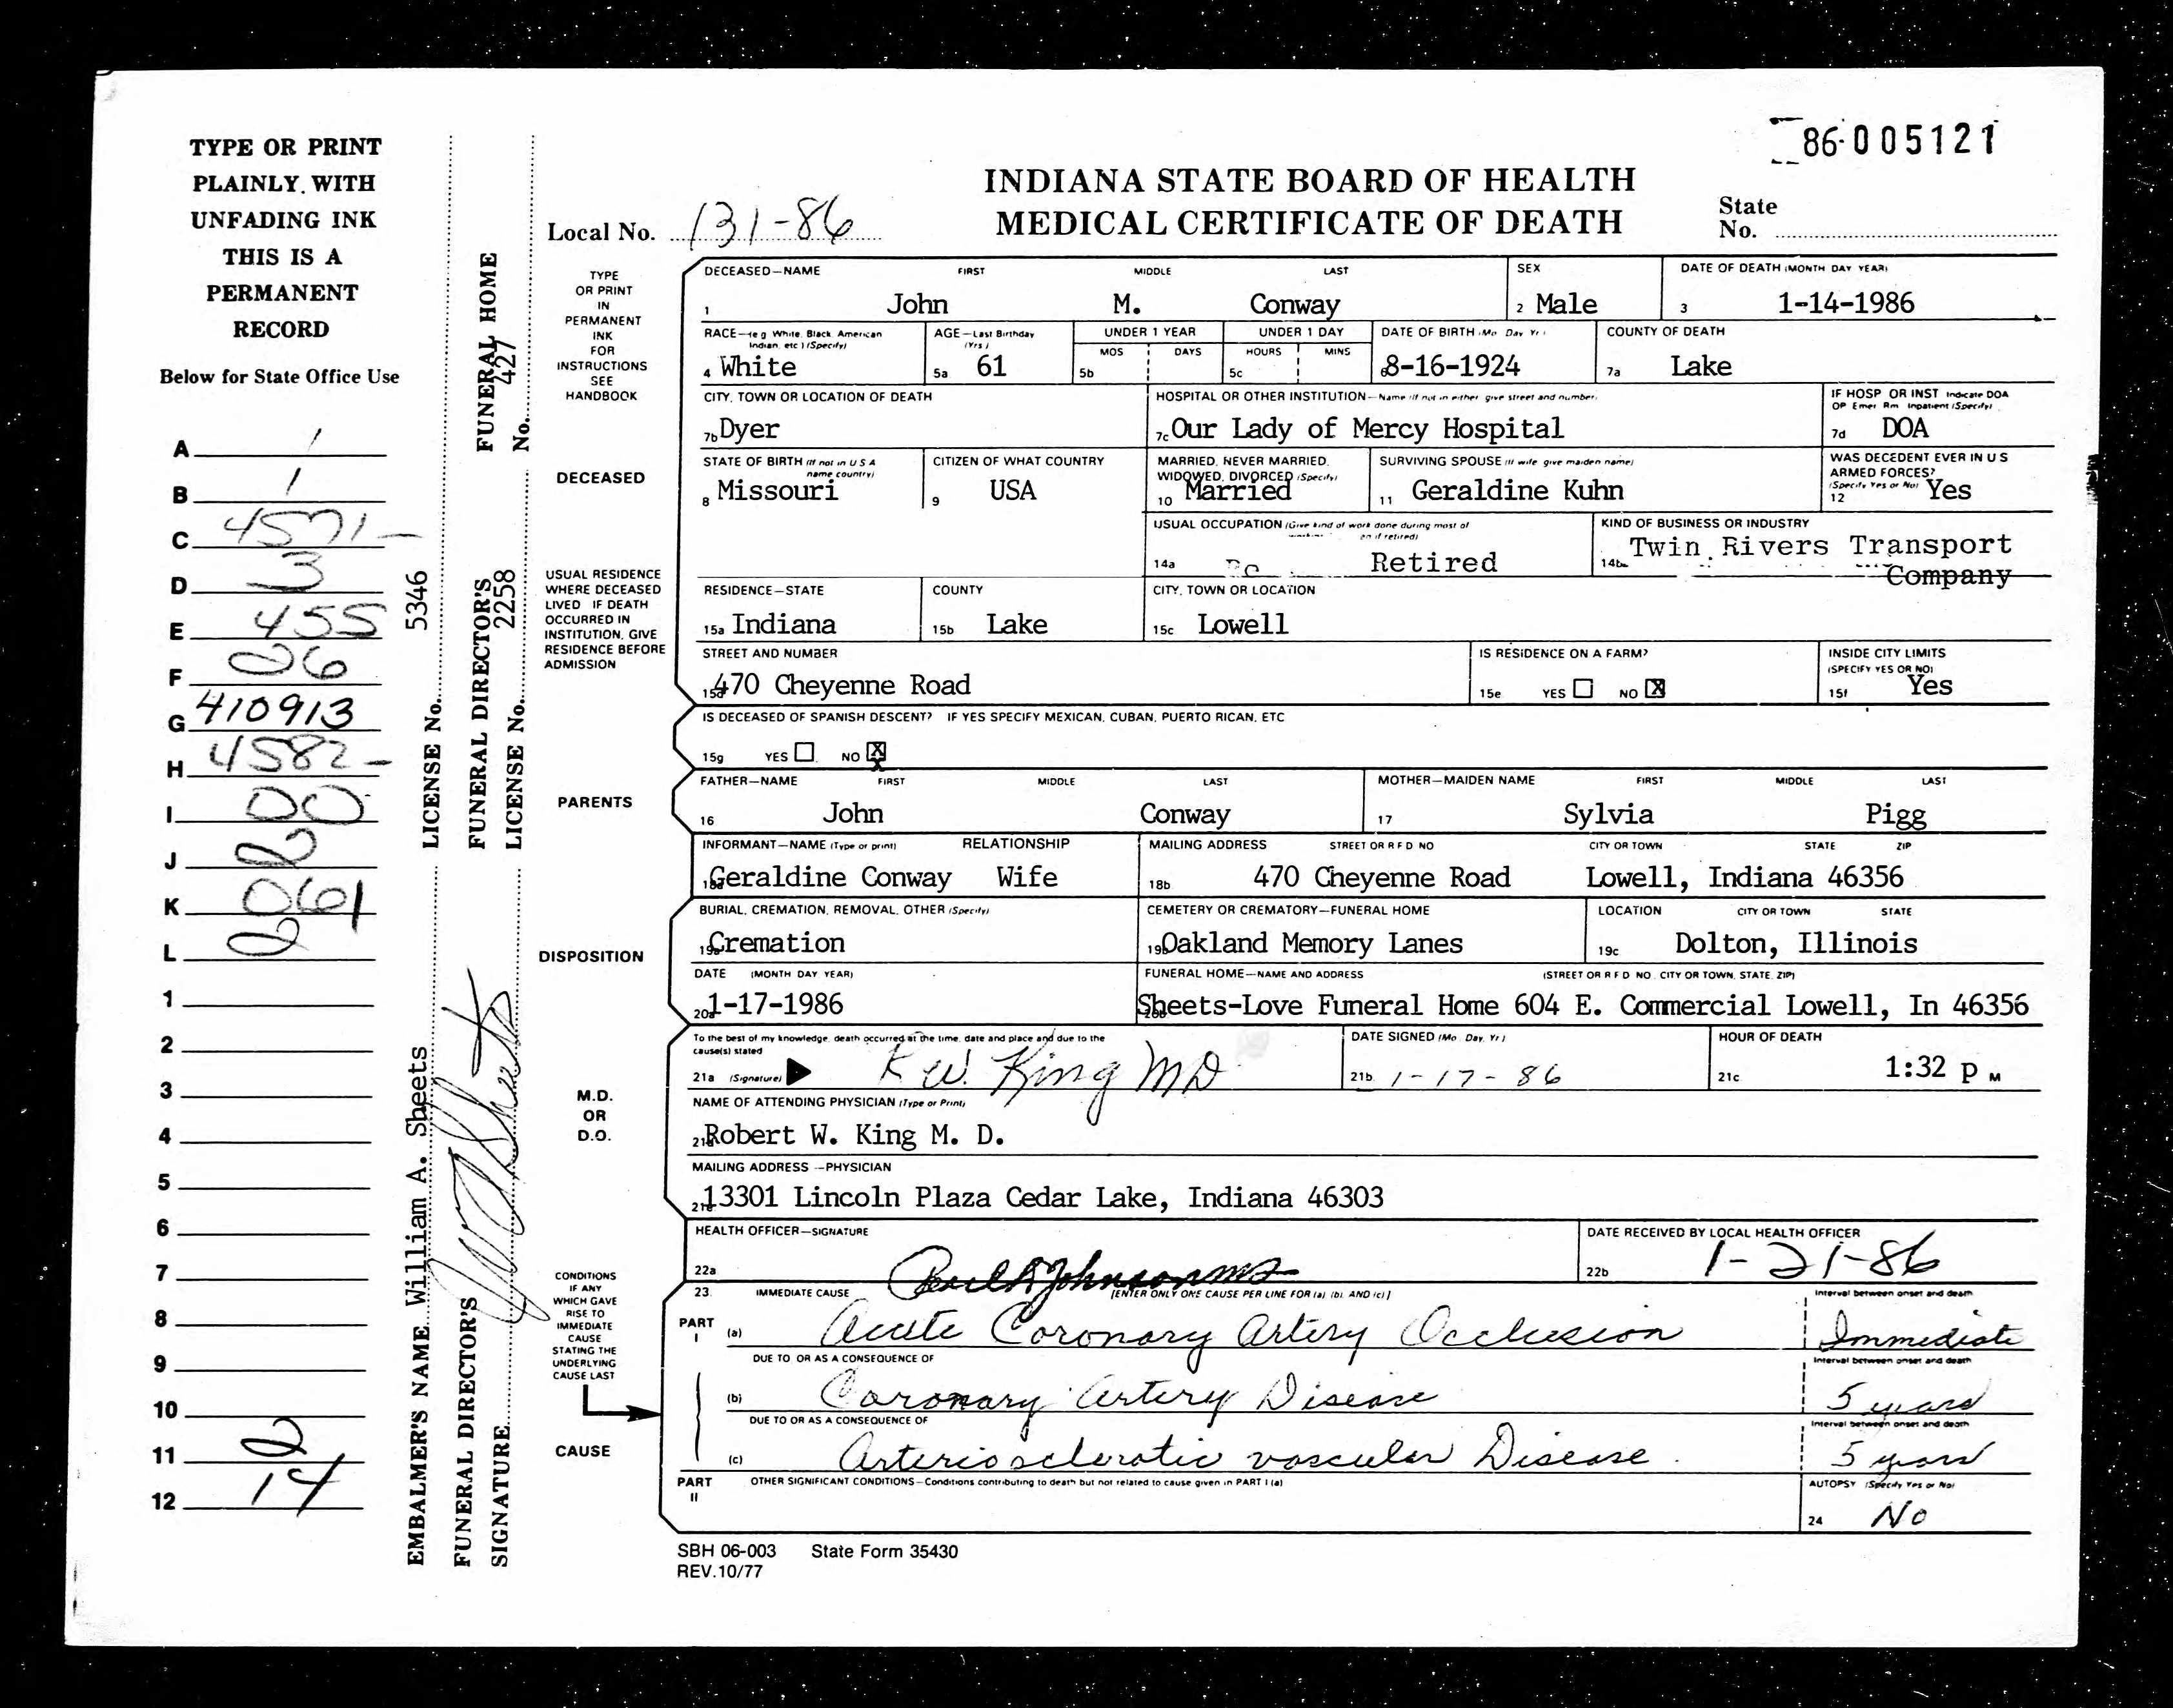 86-005121
TYPE OR PRINT
PLAINLY, WITH
UNFADING INK
THIS IS A
PERMANENT
RECORD
Below for State Office Use
A 1
B 1
C 4571-
D 3
E 455
F 26
G 410913
H 4582-
I 00
J 2
K 061
L 2
1
2
3
4
5
6
7
8
9
10
11 2
12 14
EMBALMER'S NAME William A. Sheets LICENSE No. 5346
FUNERAL DIRECTOR'S FUNERAL DIRECTOR'S FUNERAL HOME
SIGNATURE LICENSE No. 2258 No. 427
INDIANA STATE BOARD OF HEALTH
MEDICAL CERTIFICATE OF DEATH
Local No. 131-86
State
No.
TYPE
OR PRINT
IN
PERMANENT
INK
FOR
INSTRUCTIONS
SEE
HANDBOOK
DECEASED—NAME FIRST MIDDLE LAST SEX DATE OF DEATH (MONTH DAY YEAR)
1 John M. Conway 2 Male 3 1-14-1986
RACE—(e g White, Black, American AGE—Last Birthday UNDER 1 YEAR UNDER 1 DAY DATE OF BIRTH (Mo Day Yr) COUNTY OF DEATH
Indian, etc) (Specify) (Yrs) MOS DAYS HOURS MINS
4 White 5a 61 5b 5c 6 8-16-1924 7a Lake
CITY, TOWN OR LOCATION OF DEATH HOSPITAL OR OTHER INSTITUTION—Name (If not in either give street and number) IF HOSP OR INST Indicate DOA
OP Emer Rm Inpatient (Specify)
7b Dyer 7c Our Lady of Mercy Hospital 7d DOA
DECEASED
STATE OF BIRTH (If not in U S A CITIZEN OF WHAT COUNTRY MARRIED, NEVER MARRIED, SURVIVING SPOUSE (If wife give maiden name) WAS DECEDENT EVER IN U S
name country) WIDOWED, DIVORCED (Specify) ARMED FORCES?
(Specify Yes or No)
8 Missouri 9 USA 10 Married 11 Geraldine Kuhn 12 Yes
USUAL OCCUPATION (Give kind of work done during most of KIND OF BUSINESS OR INDUSTRY
if retired)
14a Retired 14b Twin Rivers Transport
Company
USUAL RESIDENCE
WHERE DECEASED
LIVED IF DEATH
OCCURRED IN
INSTITUTION, GIVE
RESIDENCE BEFORE
ADMISSION
RESIDENCE—STATE COUNTY CITY, TOWN OR LOCATION
15a Indiana 15b Lake 15c Lowell
STREET AND NUMBER IS RESIDENCE ON A FARM? INSIDE CITY LIMITS
(SPECIFY YES OR NO)
15d 470 Cheyenne Road 15e YES NO X 15f Yes
IS DECEASED OF SPANISH DESCENT? IF YES SPECIFY MEXICAN, CUBAN, PUERTO RICAN, ETC
15g YES NO X
PARENTS
FATHER—NAME FIRST MIDDLE LAST MOTHER—MAIDEN NAME FIRST MIDDLE LAST
16 John Conway 17 Sylvia Pigg
INFORMANT—NAME (Type or print) RELATIONSHIP MAILING ADDRESS STREET OR R F D NO CITY OR TOWN STATE ZIP
18a Geraldine Conway Wife 18b 470 Cheyenne Road Lowell, Indiana 46356
DISPOSITION
BURIAL, CREMATION, REMOVAL, OTHER (Specify) CEMETERY OR CREMATORY—FUNERAL HOME LOCATION CITY OR TOWN STATE
19a Cremation 19b Oakland Memory Lanes 19c Dolton, Illinois
DATE (MONTH DAY YEAR) FUNERAL HOME—NAME AND ADDRESS (STREET OR R F D NO, CITY OR TOWN, STATE, ZIP)
20a 1-17-1986 20b Sheets-Love Funeral Home 604 E. Commercial Lowell, In 46356
M.D.
OR
D.O.
To the best of my knowledge, death occurred at the time, date and place and due to the DATE SIGNED (Mo Day, Yr) HOUR OF DEATH
cause(s) stated
21a (Signature) R W. King MD 21b 1-17-86 21c 1:32 P M
NAME OF ATTENDING PHYSICIAN (Type or Print)
21d Robert W. King M. D.
MAILING ADDRESS —PHYSICIAN
21e 13301 Lincoln Plaza Cedar Lake, Indiana 46303
HEALTH OFFICER—SIGNATURE DATE RECEIVED BY LOCAL HEALTH OFFICER
22a 22b 1-21-86
CONDITIONS
IF ANY
WHICH GAVE
RISE TO
IMMEDIATE
CAUSE
STATING THE
UNDERLYING
CAUSE LAST
CAUSE
23. IMMEDIATE CAUSE [ENTER ONLY ONE CAUSE PER LINE FOR (a), (b), AND (c)] Interval between onset and death
PART
I
(a) Acute Coronary Artery Occlusion Immediate
DUE TO OR AS A CONSEQUENCE OF Interval between onset and death
(b) Coronary Artery Disease 5 years
DUE TO OR AS A CONSEQUENCE OF Interval between onset and death
(c) Arteriosclerotic vascular Disease 5 years
PART
II
OTHER SIGNIFICANT CONDITIONS—Conditions contributing to death but not related to cause given in PART I (a) AUTOPSY (Specify Yes or No)
24 No
SBH 06-003 State Form 35430
REV.10/77